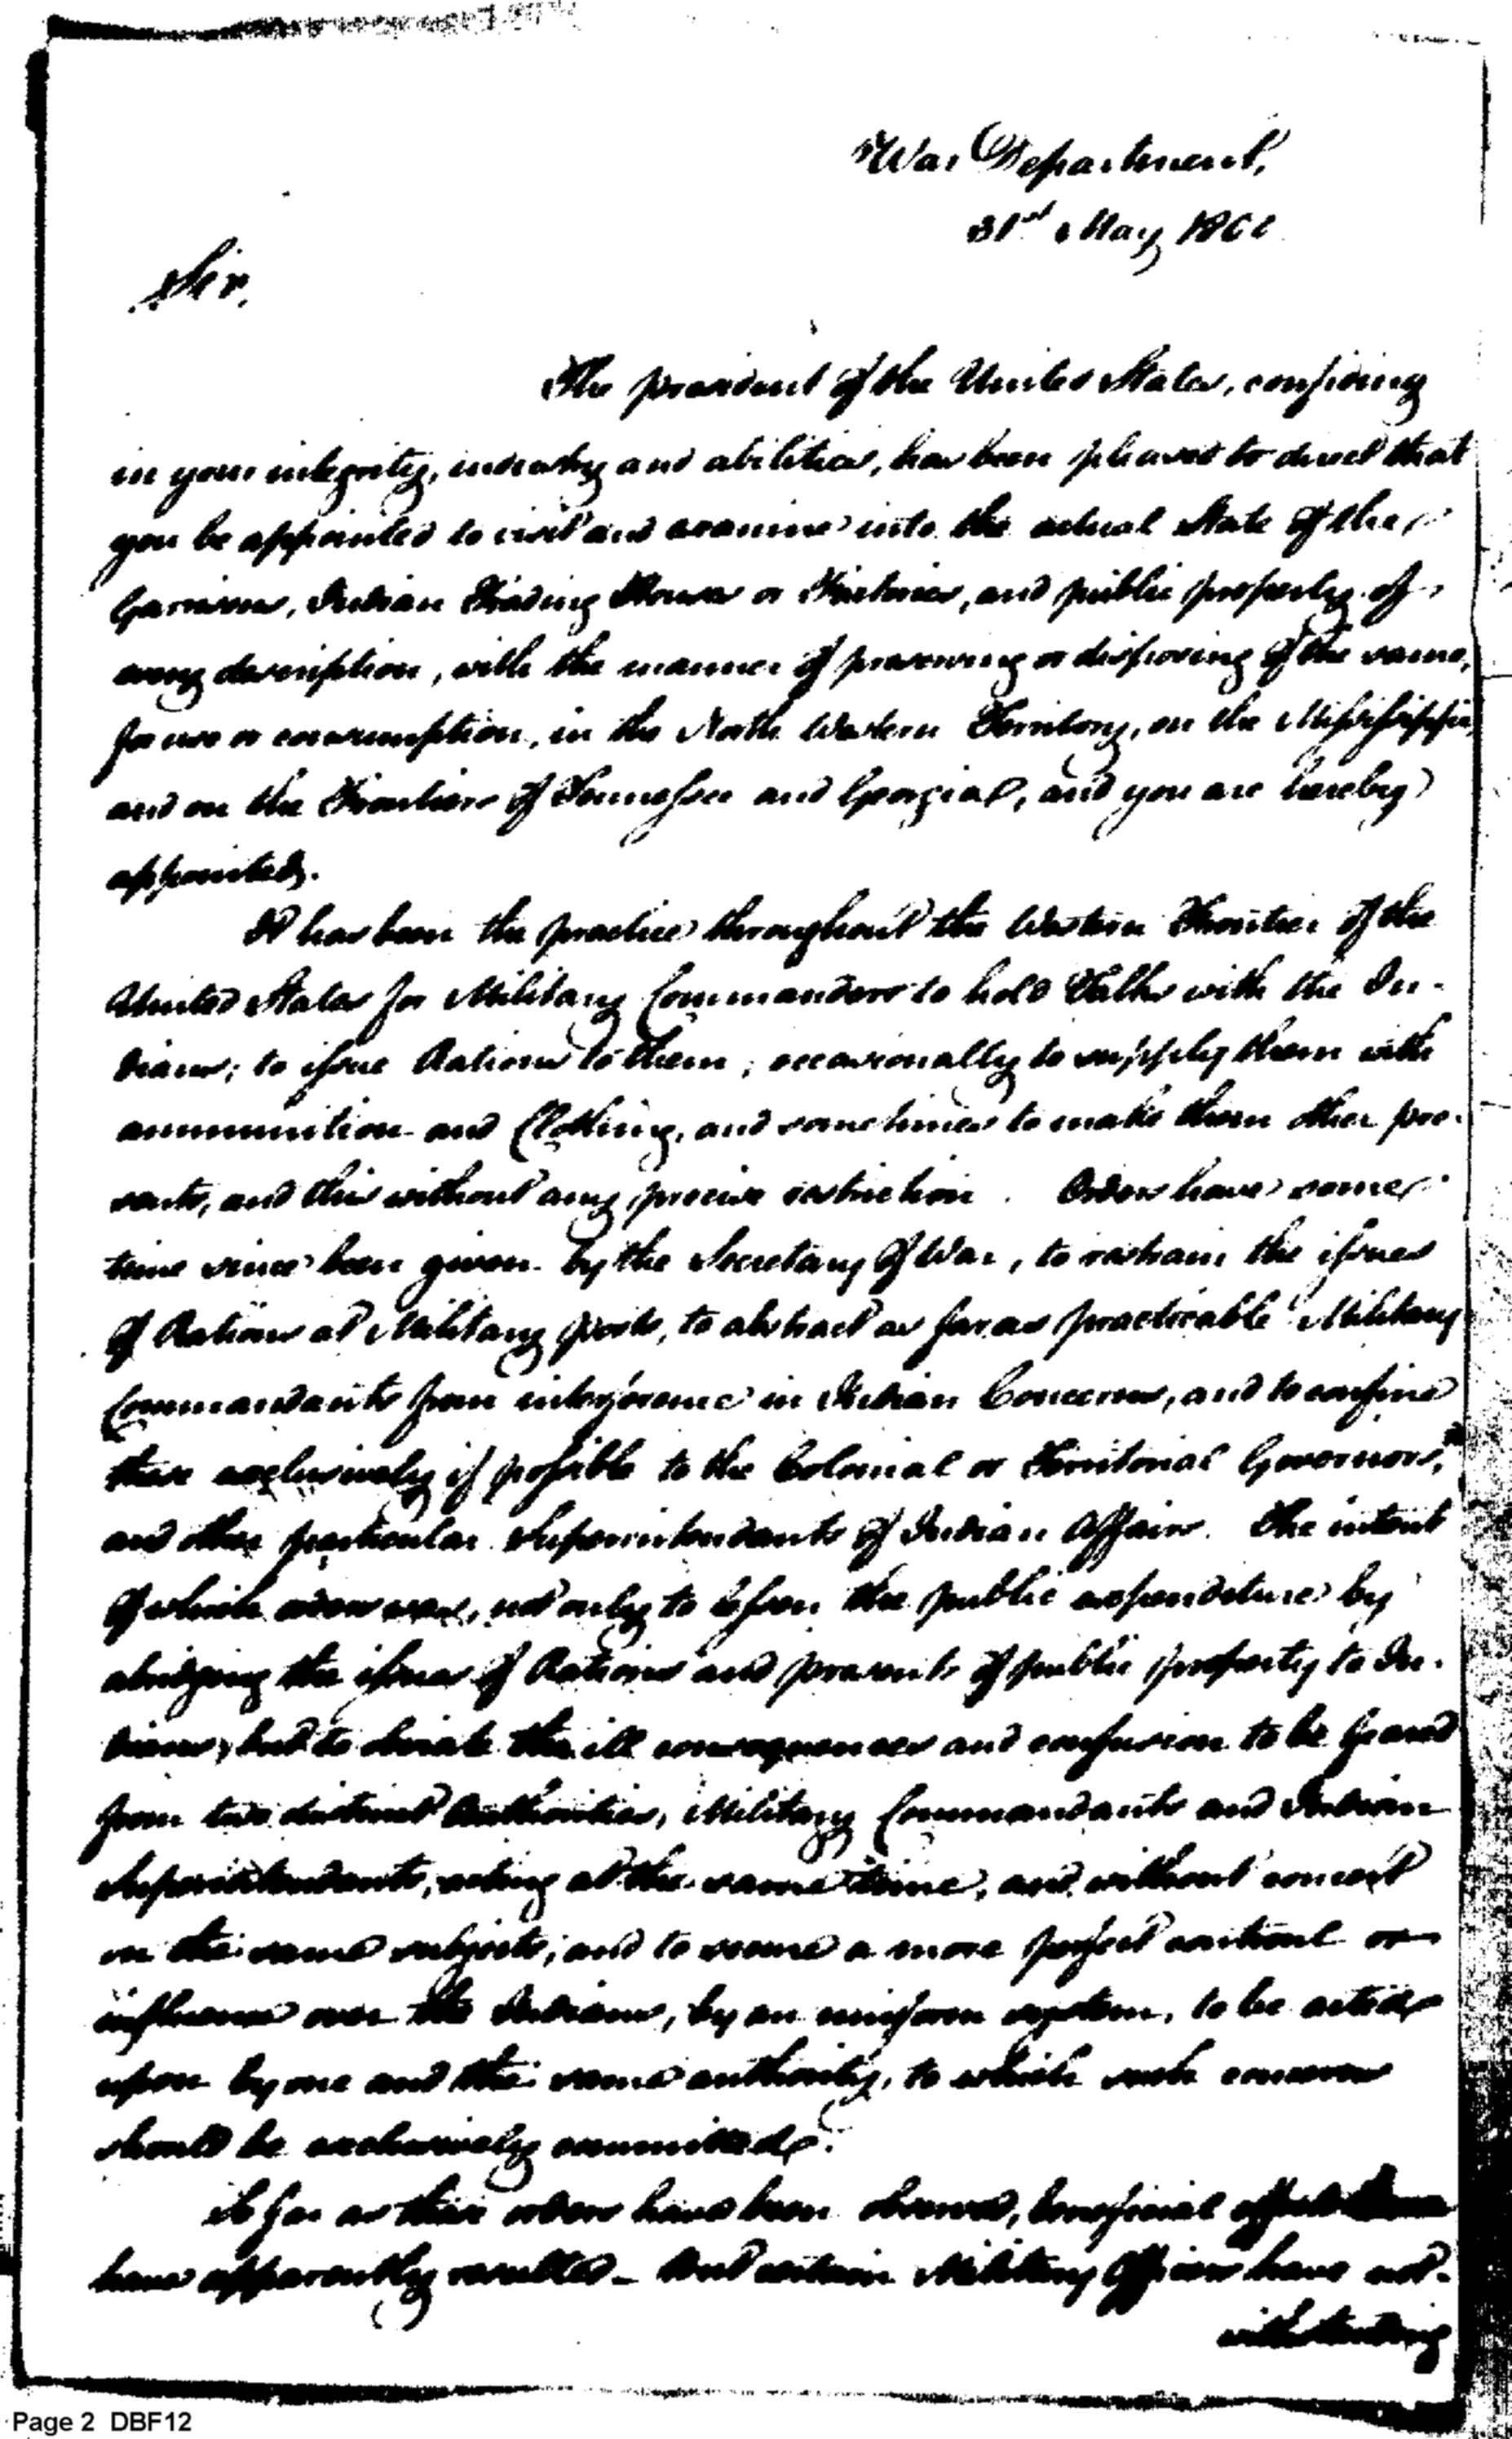 War Department,
31st May 180
Sir,
The president of the United States, confiding
in your integrity, industry and abilities, has been pleased to direct that
you be appointed to visit and examine into the actual State of the
Garrisons, Indian Trading Houses or Factories, and public property of
every description, with the manner of preserving or disposing of the same,
for use or consumption, in the North Western Territory, on the Mississippi,
and on the Frontiers of Tennessee and Georgia, and you are hereby
appointed.
It has been the practice throughout the Western Frontier of the
United States for Military Commanders to hold Talks with the In-
dians; to issue Rations to them; occasionally to supply them with
ammunition and Clothing, and sometimes to make them other pre-
sents, and this without any precise restriction. Orders have some
time since been given by the Secretary of War, to restrain the issues
of Rations at Military posts, to abstract as far as practicable Military
Commandants from interference in Indian Concerns, and to confine
these exclusively if possible to the Colonial or Territorial Governors,
and other particular Superintendants of Indian Affairs. The intent
of which orders was, not only to lessen the public expenditure by
abridging the issues of Rations and presents of public property to In-
dians, but to obviate the ill consequences and confusion to be feared
from two distinct Authorities, Military Commandants and Indian
Superintendants, acting at the same time, and without concert
on the same subjects; and to secure a more perfect controul or
influence over the Indians, by an uniform system, to be acted
upon by one and the same authority, to which such concerns
should be exclusively committed.
So far as these orders have been observed, beneficial effects
have apparently resulted - But certain Military Officers have not-
withstanding
Page 2 DBF12